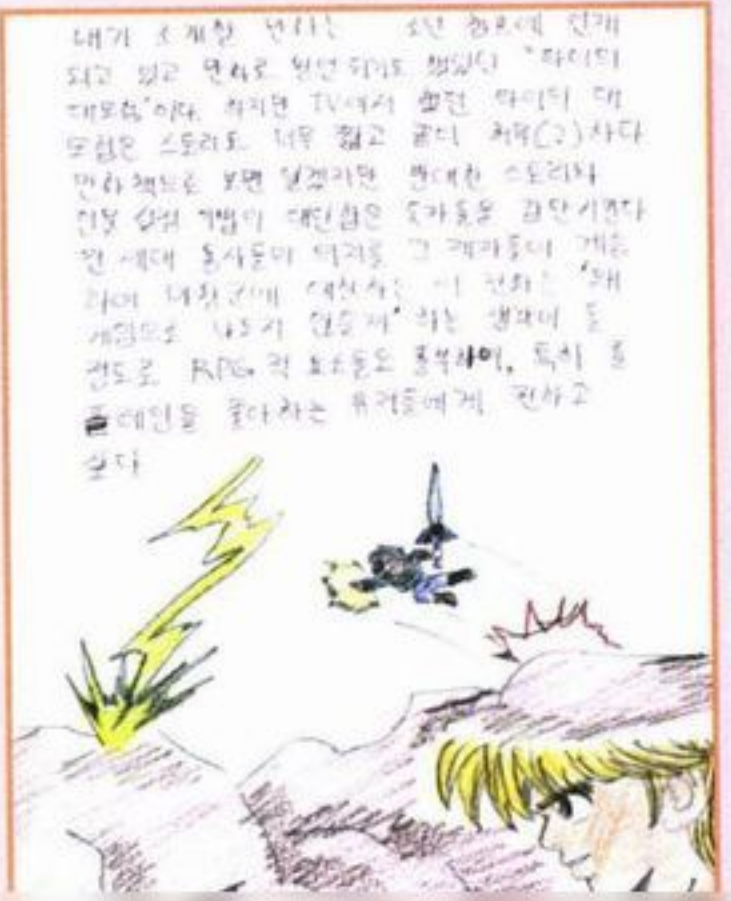 내가 소개할 만화는 소년 점프에 연재
되고 있고 만화로 방영되기도 했었던 "타이의
대모험"이다. 하지만 TV에서 했던 타이의 대
모험은 스토리도 너무 짧고 끝이 허무(?)하다
만화책으로 보면 알겠지만 방대한 스토리와
인물 심리 기법의 대단함은 독자들을 감탄시킨다
전 세대 용사들의 의지를 그 제자들이 계승
하여 대항하는 이 만화는 "왜
게임으로 나오지 않을까" 하는 생각이 들
정도로 RPG적 요소들도 풍부하여, 특히 롤
플레잉을 좋아하는 유저들에게 권하고
싶다